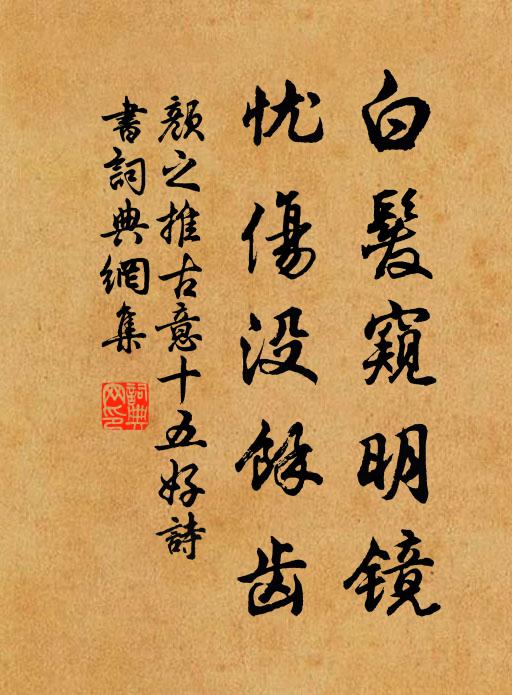 白髮窺明镜
忧傷没餘齿
顏之推古意十五好詩
書詞典網集
詞典网印